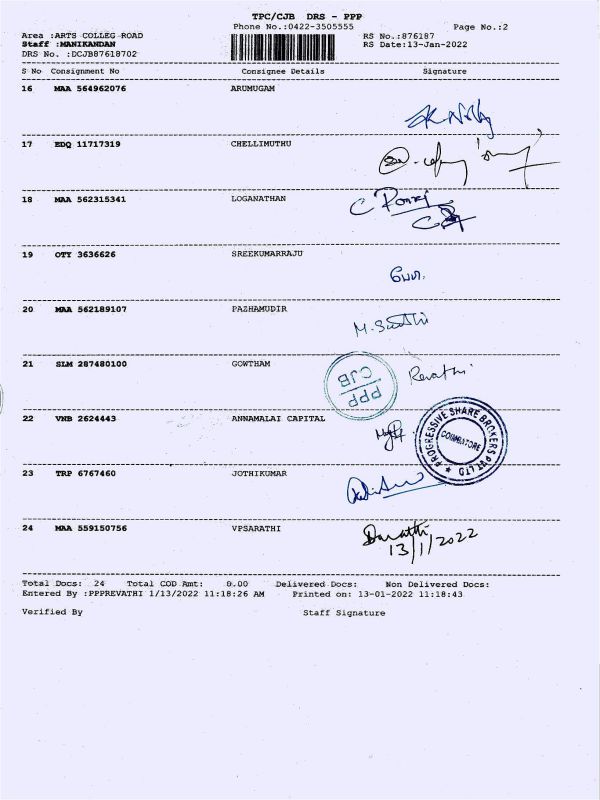 TPC/CJB DRS - PPP
Phone No.:0422-3505555 Page No.:2
Area :ARTS COLLEG ROAD RS No.:876187
Staff :MANIKANDAN RS Date:13-Jan-2022
DRS No. :DCJB87618702
S No Consignment No Consignee Details Signature
16 MAA 564962076 ARUMUGAM
17 EDQ 11717319 CHELLIMUTHU
18 MAA 562315341 LOGANATHAN
19 OTY 3636626 SREEKUMARRAJU
20 MAA 562189107 PAZHAMUDIR
21 SLM 287480100 GOWTHAM
Revathi
PPP
CJB
22 VNB 2624443 ANNAMALAI CAPITAL
PROGRESSIVE SHARE BROKERS PVT LTD
COIMBATORE
23 TRP 6767460 JOTHIKUMAR
24 MAA 559150756 VPSARATHI
13/1/2022
Total Docs: 24 Total COD Amt: 0.00 Delivered Docs: Non Delivered Docs:
Entered By :PPPREVATHI 1/13/2022 11:18:26 AM Printed on: 13-01-2022 11:18:43
Verified By Staff Signature